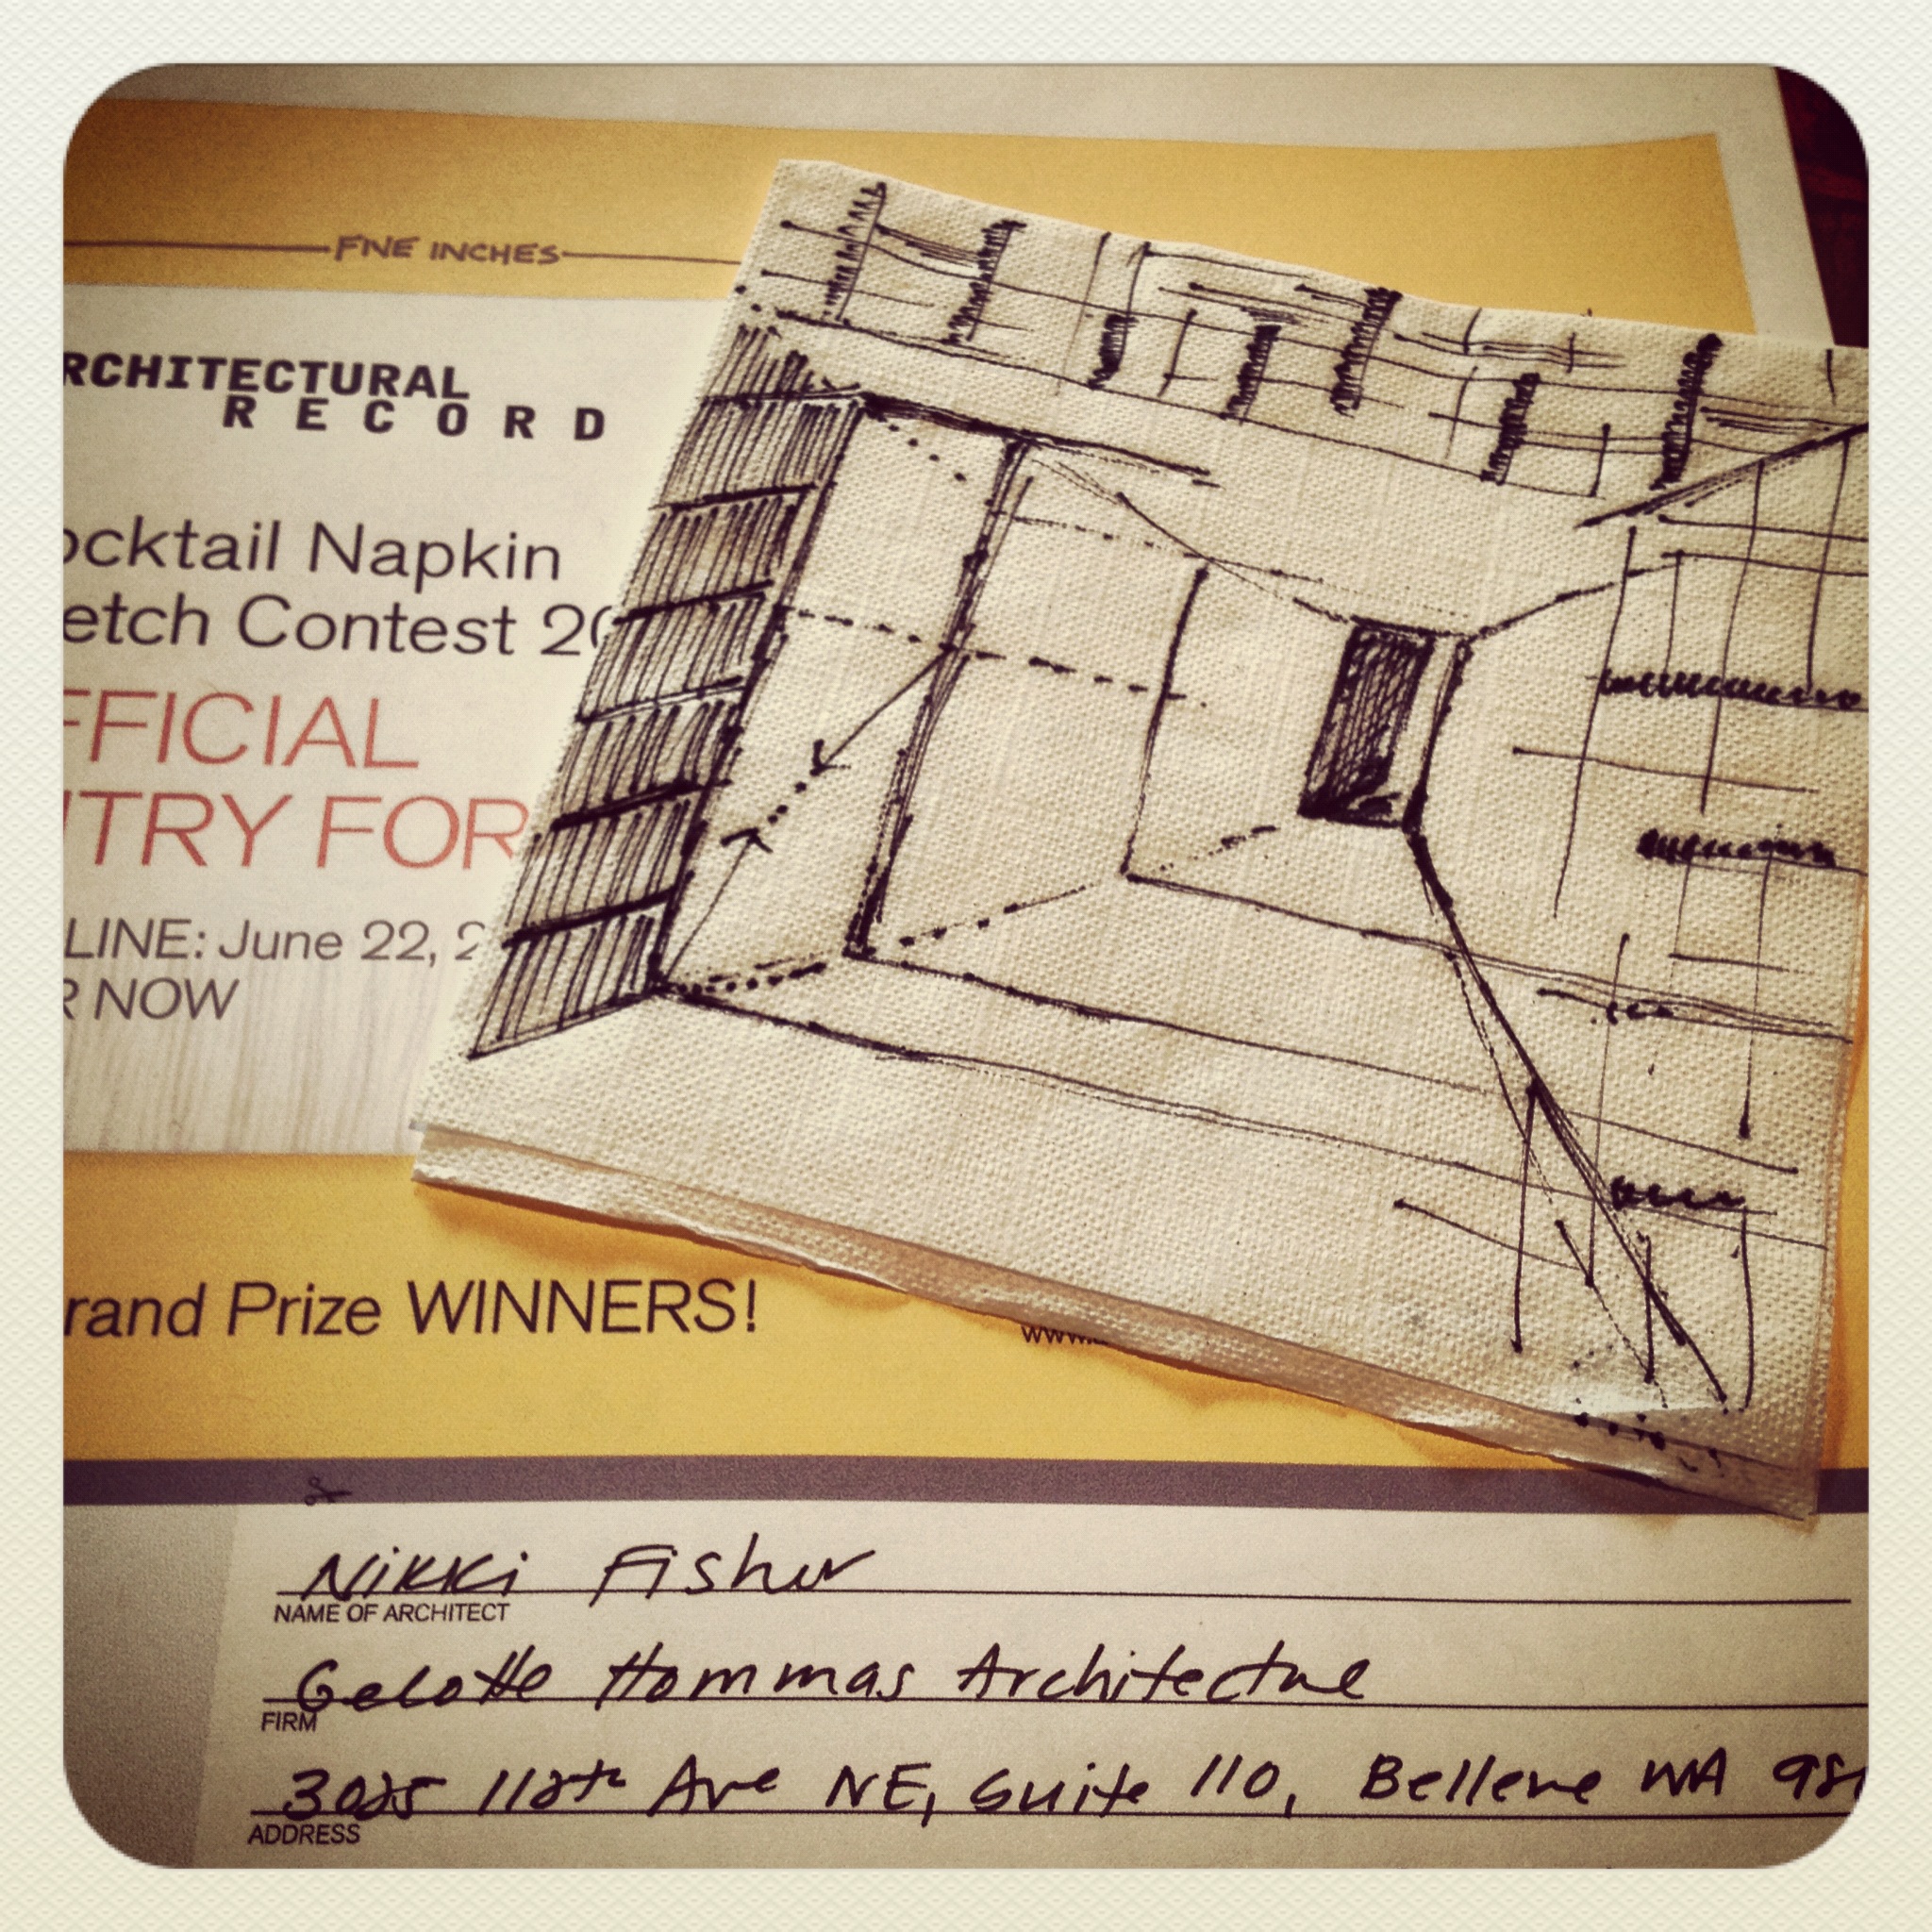 FIVE INCHES
RCHITECTURAL
RECORD
ocktail Napkin
etch Contest 20
FFICIAL
NTRY FOR
LINE: June 22, 2
R NOW
rand Prize WINNERS!
www.
Nikki Fisher
NAME OF ARCHITECT
Gelotte Hommas Architecture
FIRM
3025 112th Ave NE, Suite 110, Bellevue WA 980
ADDRESS